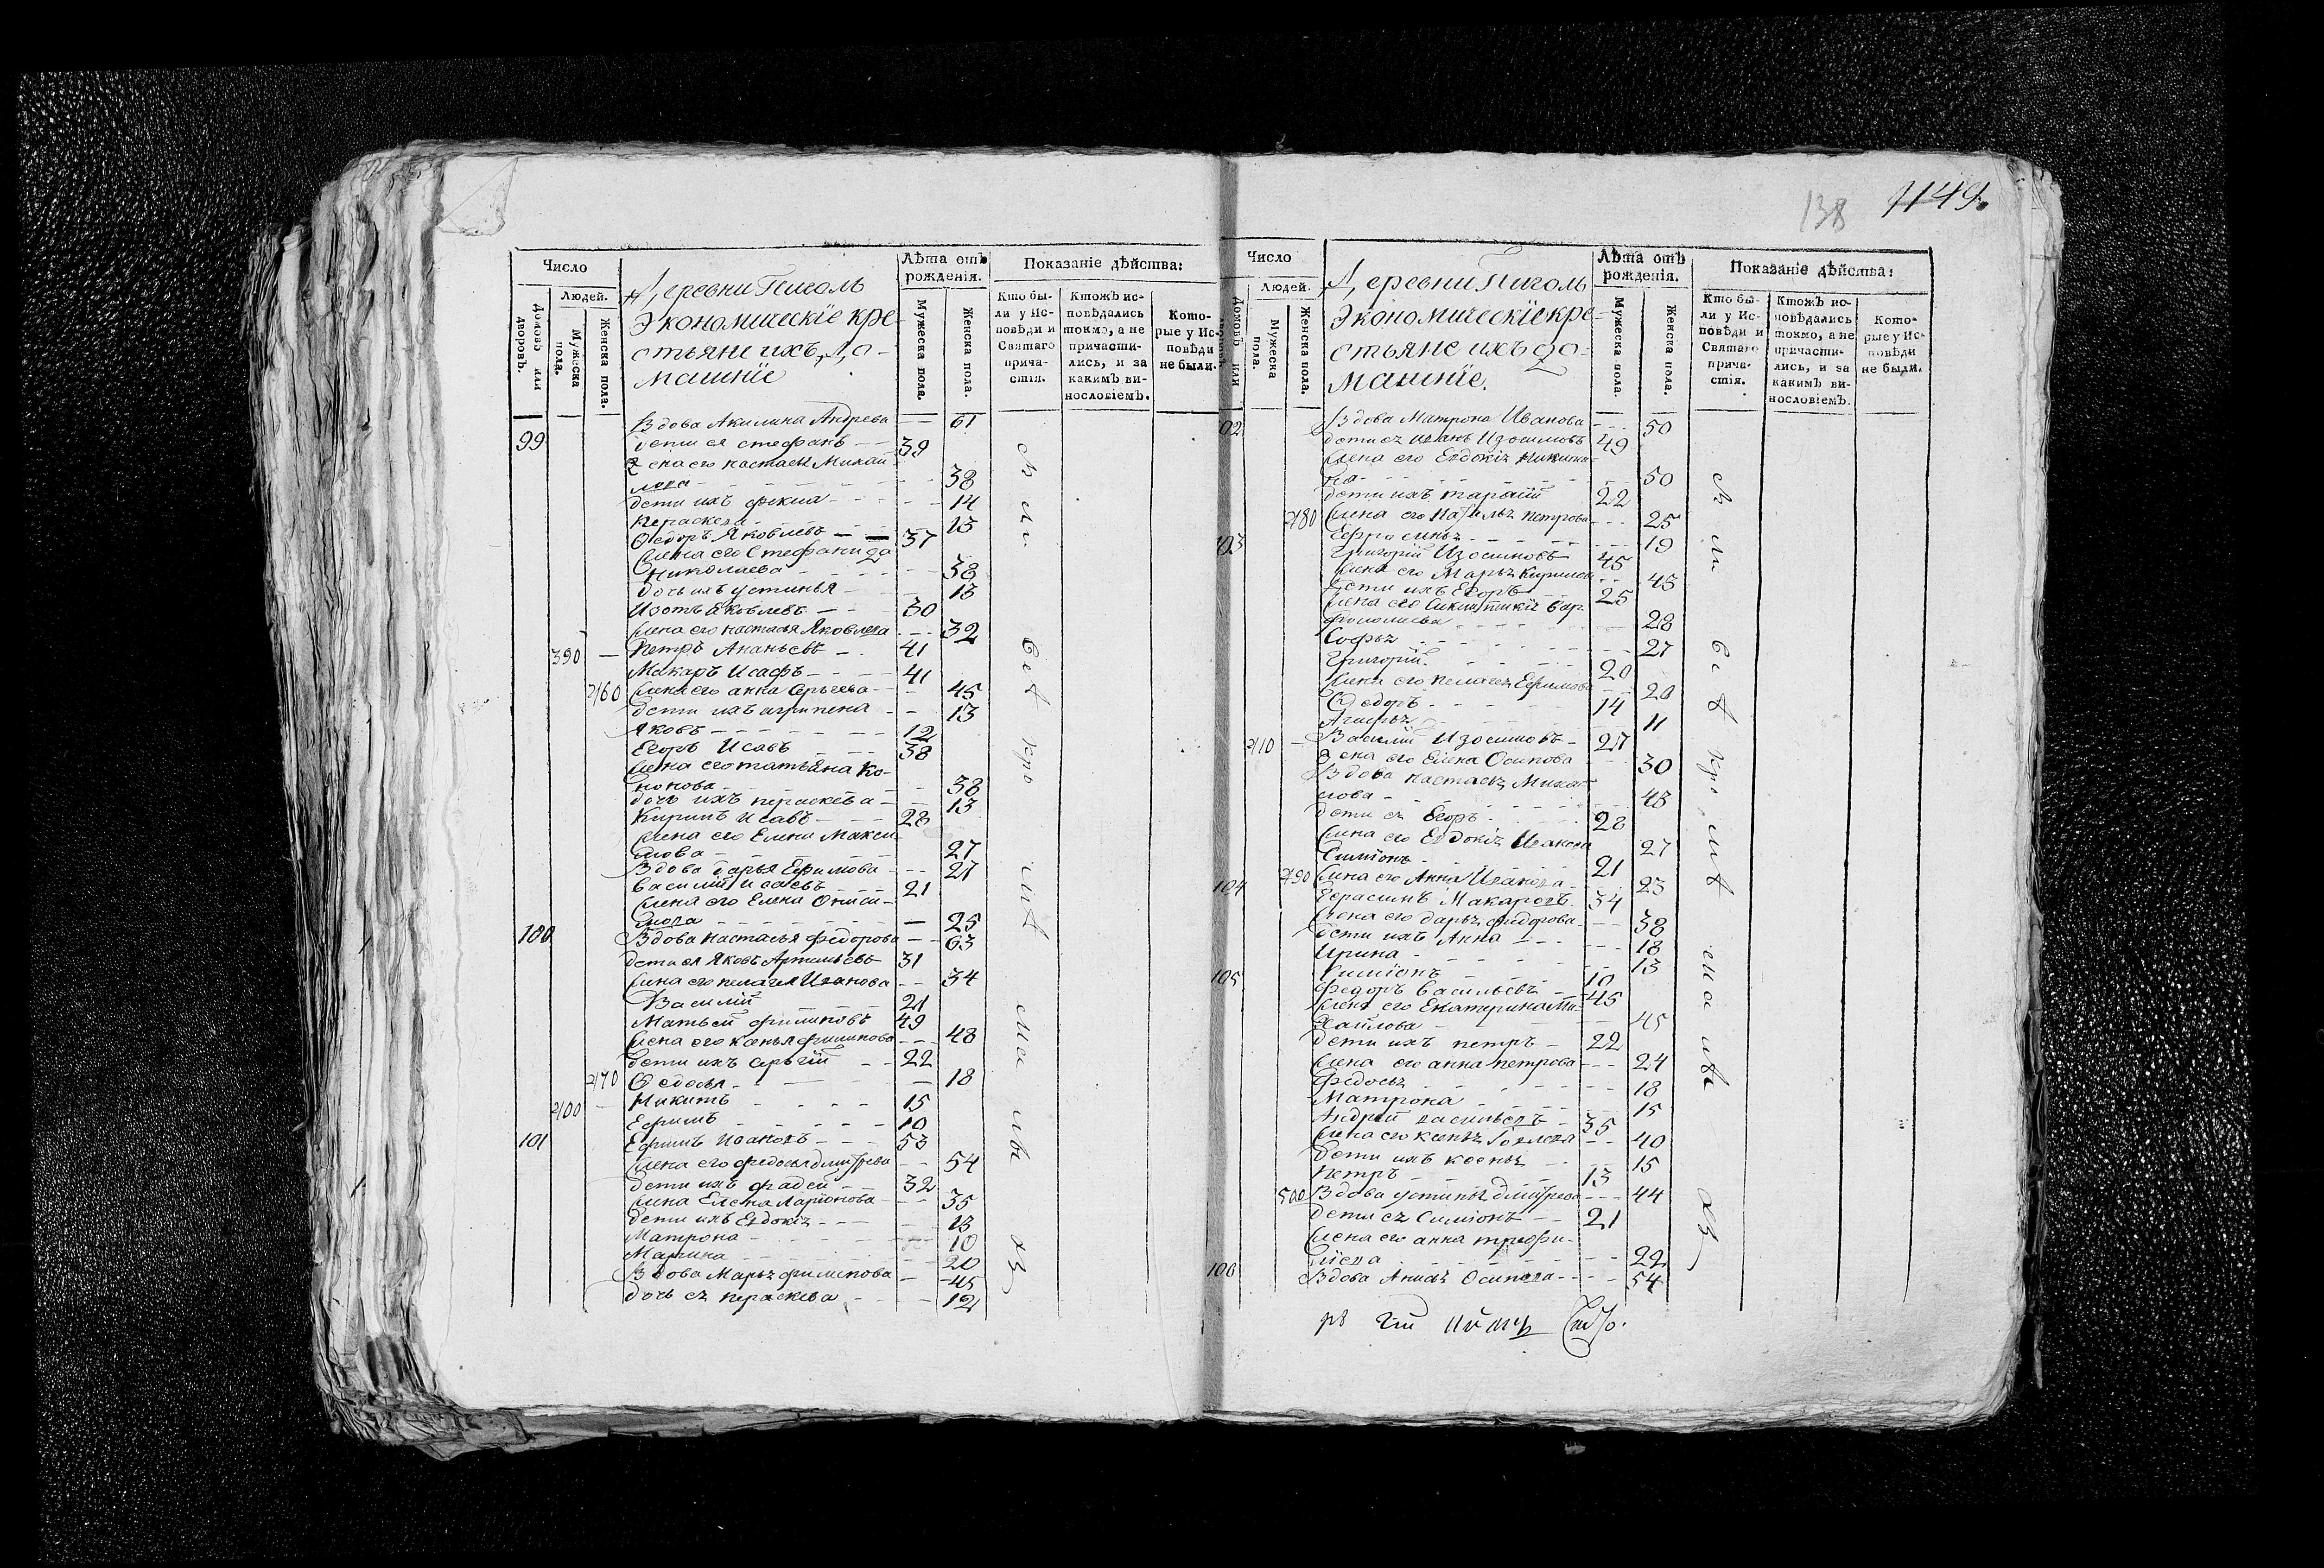 138 1149.
Число
Людей.
Домовъ или дворовъ.
Мужеска пола.
Женска пола.
Деревни Пиголь
Экономическіе кре-
стьяне ихъ до-
машніе
Лѣта отъ рожденія.
Мужеска пола.
Женска пола.
Показаніе дѣйства:
Кто бы-
ли у Ис-
повѣди и
Святаго
прича-
стія.
Ктожъ ис-
повѣдались
токмо, а не
причасти-
лись, и за
какимъ ви-
нословіемъ.
Кото-
рые у Ис-
повѣди
не были.
Вдова Акилина Андрева 61
99 дети ея стефанъ 39
жена его настасья Михай-
лова 38
дети ихъ фекла 14
Пераскева 13
Ѳедоръ Яковлевъ 37
жена его Стефанида
Николаева 38
дочь ихъ устинья 13
Изотъ Яковлевъ 30
жена его настасья Яковлева 32
390 Петръ Ананьевъ 41
Макаръ Исафъ 41
460 жена его анна Сергеева 45
дети ихъ агрипена 13
Яковъ 12
Егоръ Исавъ 38
жена его татьяна Ко-
нонова 38
дочь ихъ пераскева 13
Кирилъ Исавъ 28
жена его Елена Макси-
мова 27
Вдова дарья Ефимова 27
Василій Исаевъ 21
жена его Елена Ониси-
мова 25
100 Вдова настасья федорова 63
дети ея Яковъ Артемьевъ 31
жена его пелагея Иванова 34
Василій 21
Матвей филиповъ 49
жена его ксенья филипова 48
дети ихъ сергій 22
470 Ѳедосья 18
400 Никита 15
Ефимъ 10
101 Ефимъ Ивановъ 53
жена его федосья дмитрева 54
дети ихъ фадей 32
жена Елена Ларіонова 35
дети ихъ Евдокія 13
Матрона 10
Марина 20
Вдова Марья филипова 45
дочь ея пераскева 12
Число
Людей.
Домовъ или дворовъ.
Мужеска пола.
Женска пола.
Деревни Пиголь
Экономическіе кре-
стьяне ихъ до-
машніе.
Лѣта отъ рожденія.
Мужеска пола.
Женска пола.
Показаніе дѣйства:
Кто бы-
ли у Ис-
повѣди и
Святаго
прича-
стія.
Ктожъ ис-
повѣдались
токмо, а не
причасти-
лись, и за
какимъ ви-
нословіемъ.
Кото-
рые у Ис-
повѣди
не были.
02 Вдова Матрона Иванова 50
дети ея иванъ Изосимовъ 49
жена его Евдокія никити-
на 50
дети ихъ тарасій 22
480 жена его Наталья петрова 25
Ефросинья 19
103 Григорій Изосимовъ 45
жена его Марья Кирилова 45
дети ихъ Егоръ 25
жена его Вар-
фоломеева 28
Софья 27
Григорій 20
жена его пелагея Ефимова 20
Ѳедоръ 14
Агафья 11
410 Василій Изосимовъ 27
жена его Елена Осипова 30
Вдова настасья Михай-
лова 48
дети ея Егоръ 28
жена его Евдокія Иванова 27
Симіонъ 21
490 жена его Анна Иванова 23
104 Герасимъ Макаровъ 34
жена его дарья федорова 38
дети ихъ Анна 18
Ирина 13
Симіонъ 10
105 Федоръ Васильевъ 45
жена его Екатерина Ми-
хайлова 45
дети ихъ петръ 22
жена его анна петрова 24
Федосья 18
Матрона 15
Андрей васильевъ 35
жена его ксенья 40
дети ихъ ксенья 15
Петръ 13
500 Вдова устинья дмитрева 44
дети ея Симіонъ 21
жена его анна трофи-
мова 22
106 Вдова Анисья Осипова 54